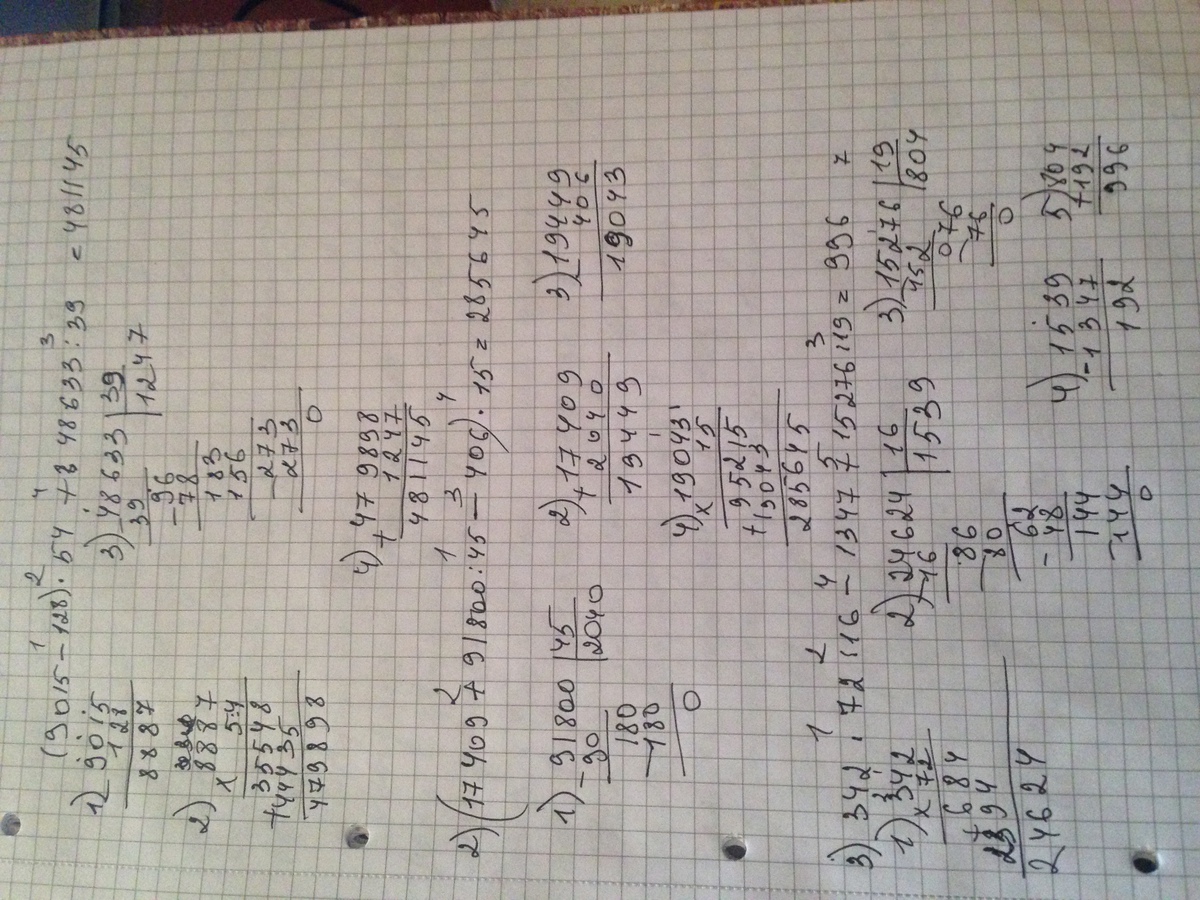 1 2 4 3
(9015-128)·54+48633:39 =481145
1) 9015
128
8887
2) 8887
x 54
35548
+44435
479898
3) 48633 | 39
39 | 1247
-96
78
183
156
-273
273
0
4) 479898
+ 1247
481145
2 1 3 4
2)(17409+91800:45-406)·15=285645
1) -91800 | 45
90 | 2040
180
-180
0
2) +17409
2040
19449
3) 19449
406
19043
4) x19043
15
95215
+19043
285645
1 2 4 5 3
3) 342·72:16-1347+15276:19=996
1) 342
x 72
684
+2394
24624
2) 24624 | 16
-16 | 1539
86
80
-62
48
144
-144
0
3) 15276 | 19
152 | 804
076
-76
0
4) 1539
-1347
192
5) 804
+192
996